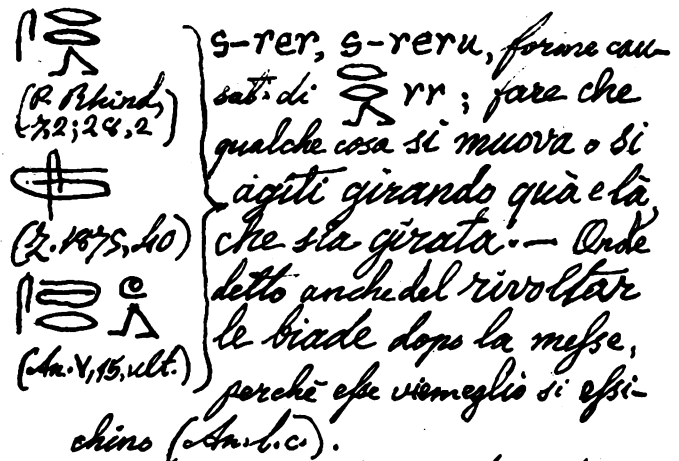 𓋴𓂋𓂋𓂻
(P. Rhind,
72; 28, 2)
(Z. 1875, 40)
(An. V, 15, ult.)
s-rer, s-reru, forme cau-
sati. di 𓂋𓂋𓂻 rr ; fare che
qualche cosa si muova o si
agiti girando quà e là,
che sia girata. — Onde
detto anche del rivoltar
le biade dopo la messe,
perchè esse viemeglio si essi-
chino (An. l. c.).